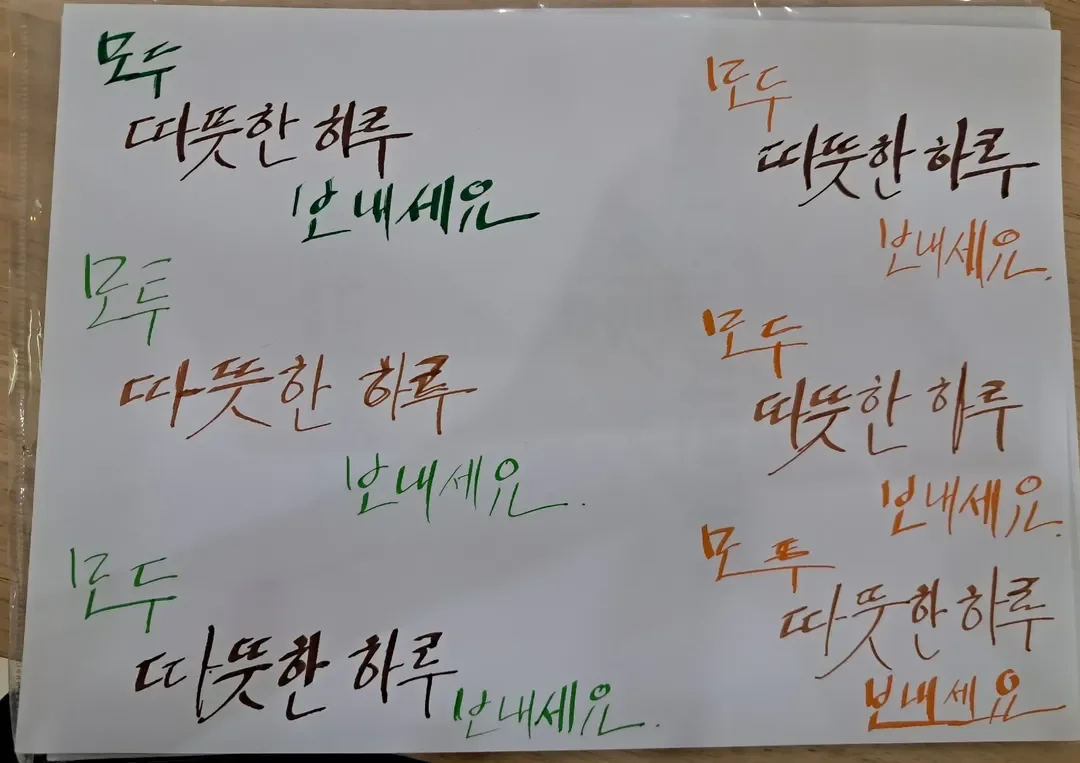 모두
따뜻한 하루
보내세요
모두
따뜻한 하루
보내세요.
모두
따뜻한 하루
보내세요.
모두
따뜻한 하루
보내세요.
모두
따뜻한 하루
보내세요.
모두
따뜻한 하루
보내세요